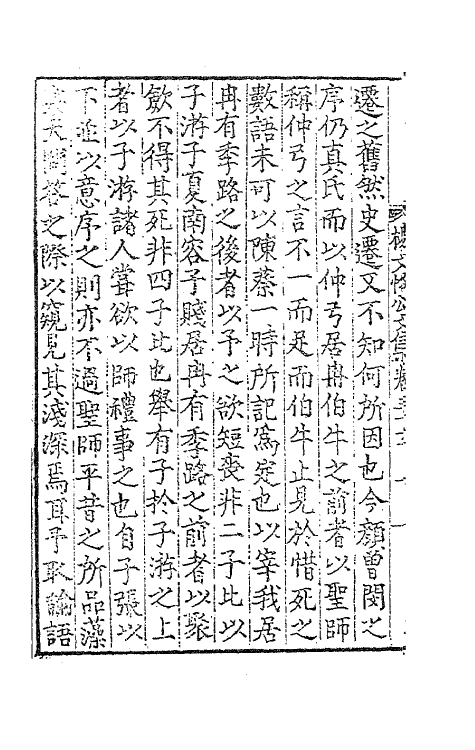 遷之舊然史遷又不知何所因也今顏曾閔之
序仍真氏而以仲弓居冉伯牛之前者以聖師
稱仲弓之言不一而足而伯牛止見於惜死之
數語未可以陳蔡一時所記為定也以宰我居
冉有季路之後者以予之欲短喪非二子比以
子游子夏南容子賤居冉有季路之前者以聚
斂不得其死非四子比也舉有子於子游之上
者以子游諸人嘗欲以師禮事之也自子張以
下並以意序之則亦不過聖師平昔之所品藻
與夫問答之際以窺見其淺深焉耳予取論語
楊文恪公文集卷